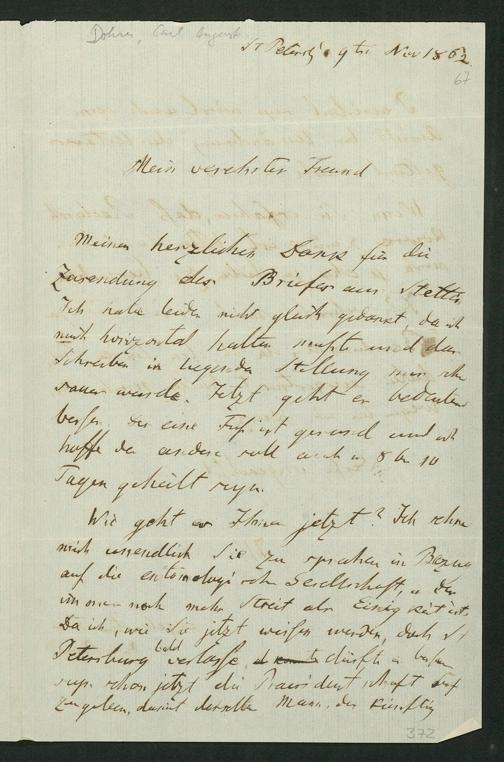 Dohrn, Carl August
St Petersb. 9ten Nov 1862.
67
Mein verehrter Freund
Meinen herzlichen Dank für die
Zusendung des Briefes aus Stettin
Ich habe leider nicht gleich gedankt, da ich
mich horizontal halten mußte und das
Schreiben in liegender Stellung mir sehr
sauer wurde. Jetzt geht es bedeutend
besser, der eine Fuß ist gesund und ich
hoffe der andere soll auch in 8 bis 10
Tagen geheilt seyn.
Wie geht es Ihnen jetzt? Ich sehne
mich unendlich Sie zu sprechen in Bezug
auf die entomologische Gesellschaft, in der
immer noch mehr Streit als Einigkeit ist.
Da ich, wie Sie jetzt wissen werden, doch St
Petersburg bald verlasse, dürfte es besser
seyn schon jetzt die Praesidentschaft auf
zugeben, damit derselbe Mann, der künftig
372